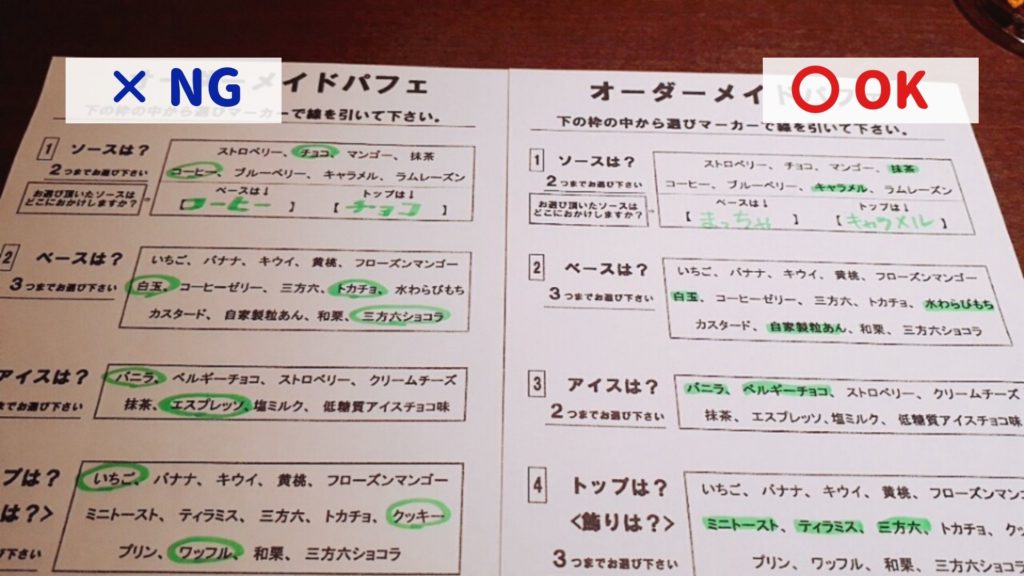 × NG
オーダーメイドパフェ
下の枠の中から選びマーカーで線を引いて下さい。
1 ソースは?
2つまでお選び下さい
ストロベリー、チョコ、マンゴー、抹茶
コーヒー、ブルーベリー、キャラメル、ラムレーズン
お選び頂いたソースは
どこにおかけしますか?
ベースは↓ トップは↓
【コーヒー】 【チョコ】
2 ベースは?
3つまでお選び下さい
いちご、バナナ、キウイ、黄桃、フローズンマンゴー
白玉、コーヒーゼリー、三方六、トカチョ、水わらびもち
カスタード、自家製粒あん、和栗、三方六ショコラ
アイスは?
までお選び下さい
バニラ、ベルギーチョコ、ストロベリー、クリームチーズ
抹茶、エスプレッソ、塩ミルク、低糖質アイスチョコ味
プは?
は?>
下さい
いちご、バナナ、キウイ、黄桃、フローズンマンゴー
ミニトースト、ティラミス、三方六、トカチョ、クッキー
プリン、ワッフル、和栗、三方六ショコラ
○ OK
オーダーメイドパフェ
下の枠の中から選びマーカーで線を引いて下さい。
1 ソースは?
2つまでお選び下さい
ストロベリー、チョコ、マンゴー、抹茶
コーヒー、ブルーベリー、キャラメル、ラムレーズン
お選び頂いたソースは
どこにおかけしますか?
ベースは↓ トップは↓
【まっちゃ】 【キャラメル】
2 ベースは?
3つまでお選び下さい
いちご、バナナ、キウイ、黄桃、フローズンマンゴー
白玉、コーヒーゼリー、三方六、トカチョ、水わらびもち
カスタード、自家製粒あん、和栗、三方六ショコラ
3 アイスは?
2つまでお選び下さい
バニラ、ベルギーチョコ、ストロベリー、クリームチーズ
抹茶、エスプレッソ、塩ミルク、低糖質アイスチョコ味
4 トップは?
<飾りは?>
3つまでお選び下さい
いちご、バナナ、キウイ、黄桃、フローズンマンゴー
ミニトースト、ティラミス、三方六、トカチョ、クッ
プリン、ワッフル、和栗、三方六ショコラ